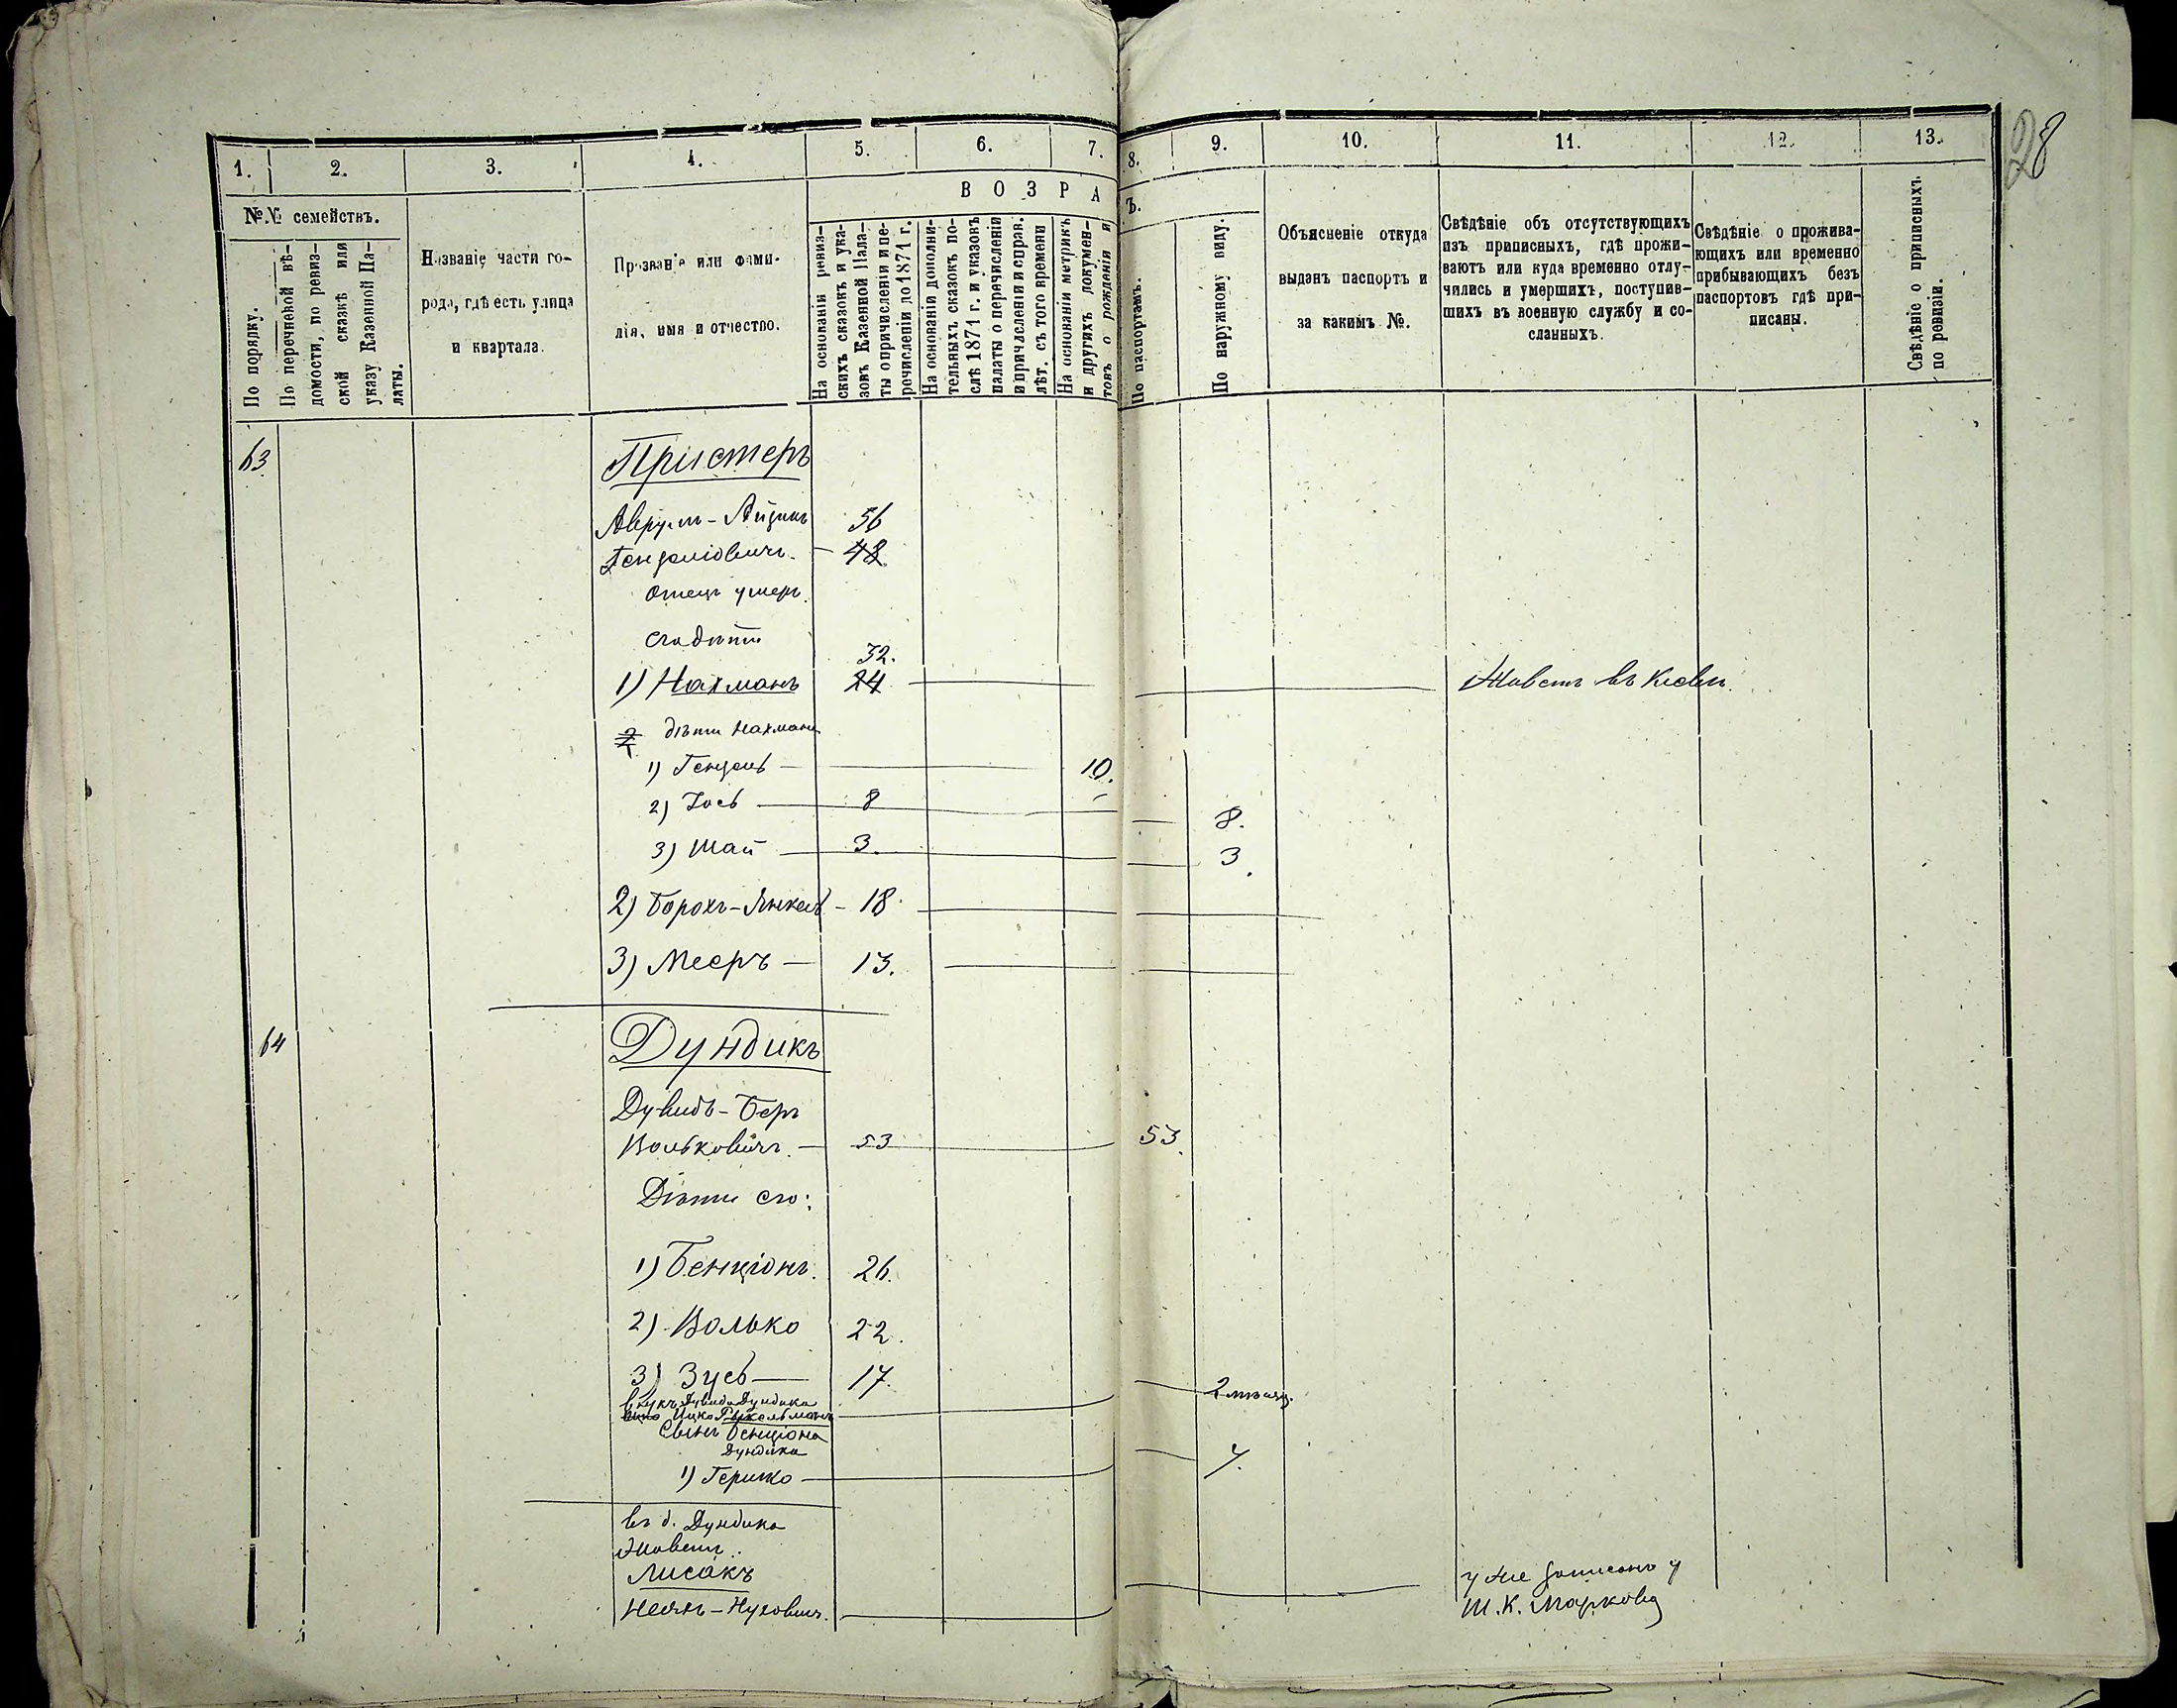 28
1. 2. 3. 4. 5. 6. 7. 8. 9. 10. 11. 12. 13.
№.№ семействъ.
По порядку.
По перечневой вѣ-
домости, по ревиз-
ской сказкѣ или
указу Казенной Па-
латы.
Названіе части го-
рода, гдѣ есть улица
и квартала.
Прозваніе или фами-
лія, имя и отчество.
ВОЗРА
Ъ.
На основаніи ревиз-
скихъ сказокъ и ука-
зовъ Казенной Пала-
ты о причисленіи и пе-
речисленіи до 1871 г.
На основаніи дополни-
тельныхъ сказокъ по-
слѣ 1871 г. и указовъ
палаты о перечисленіи
и причисленіи и справ.
лѣт. съ того времени
На основаніи метрикъ
и другихъ докумен-
товъ о рожденіи и
По паспортамъ.
По наружному виду.
Объясненіе откуда
выданъ паспортъ и
за какимъ №.
Свѣдѣніе объ отсутствующихъ
изъ приписныхъ, гдѣ прожи-
ваютъ или куда временно отлу-
чились и умершихъ, поступив-
шихъ въ военную службу и со-
сланныхъ.
Свѣдѣніе о прожива-
ющихъ или временно
прибывающихъ безъ
паспортовъ гдѣ при-
писаны.
Свѣдѣніе о приписныхъ
по ревизіи.
63 Пристеръ
Аврумъ-Айзикъ 56
Гендліовичъ. - 48
Отецъ умеръ.
его дѣти
32.
1) Нахманъ 24 Живетъ въ Кіевѣ.
2 дѣти Нахмана
1) Гендель 10.
2) Іось 8 8.
3) Шая 3. 3.
2) Борохъ-Янкель - 18.
3) Мееръ 13.
64 Дундикъ
Дувидъ-Беръ
Вольковичъ. 53 53.
Дѣти его:
1) Бенціонъ. 26.
2) Волько 22.
3) Зусь 17.
внукъ Дувида Дундика 2 мѣсяц.
Ицко
Сынъ Бенціона
Дундика
1) Гершко
въ д. Дундика
Живетъ:
Лисакъ
Нуховичъ.
уже записанъ у
Ш. К. Маркова